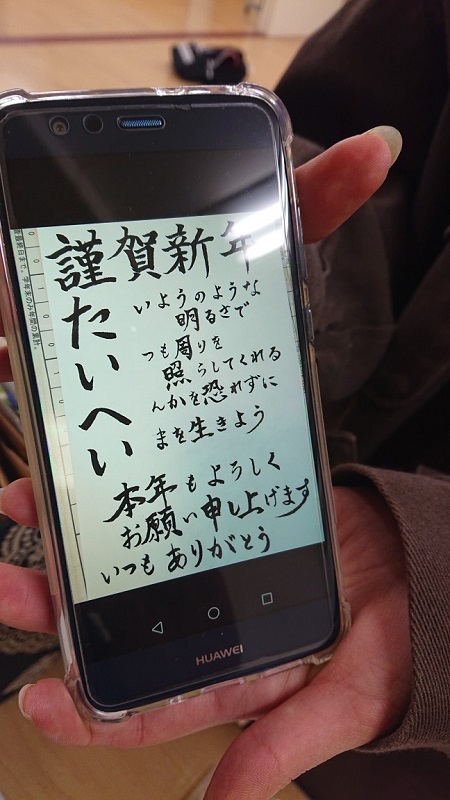 謹賀新年
たいようのような
明るさで
いつも周りを
照らしてくれる
へんかを恐れずに
いまを生きよう
本年もよろしく
お願い申し上げます
いつもありがとう
HUAWEI